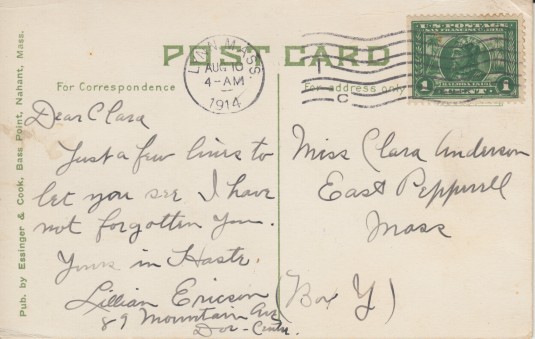 POST CARD
LYNN, MASS.
AUG 10
4-AM
1914
C
U.S. POSTAGE
SAN FRANCISCO 1915
1 BALBOA 1513 1
CENT
For Correspondence
For address only
Dear Clara
Just a few lines to
let you see I have
not forgotten you.
Yours in Haste.
Lillian Ericson
89 Mountain Ave
Dor- Centre.
Miss Clara Anderson
East Pepperell
Mass
(Box Y)
Pub. by Essinger & Cook, Bass Point, Nahant, Mass.